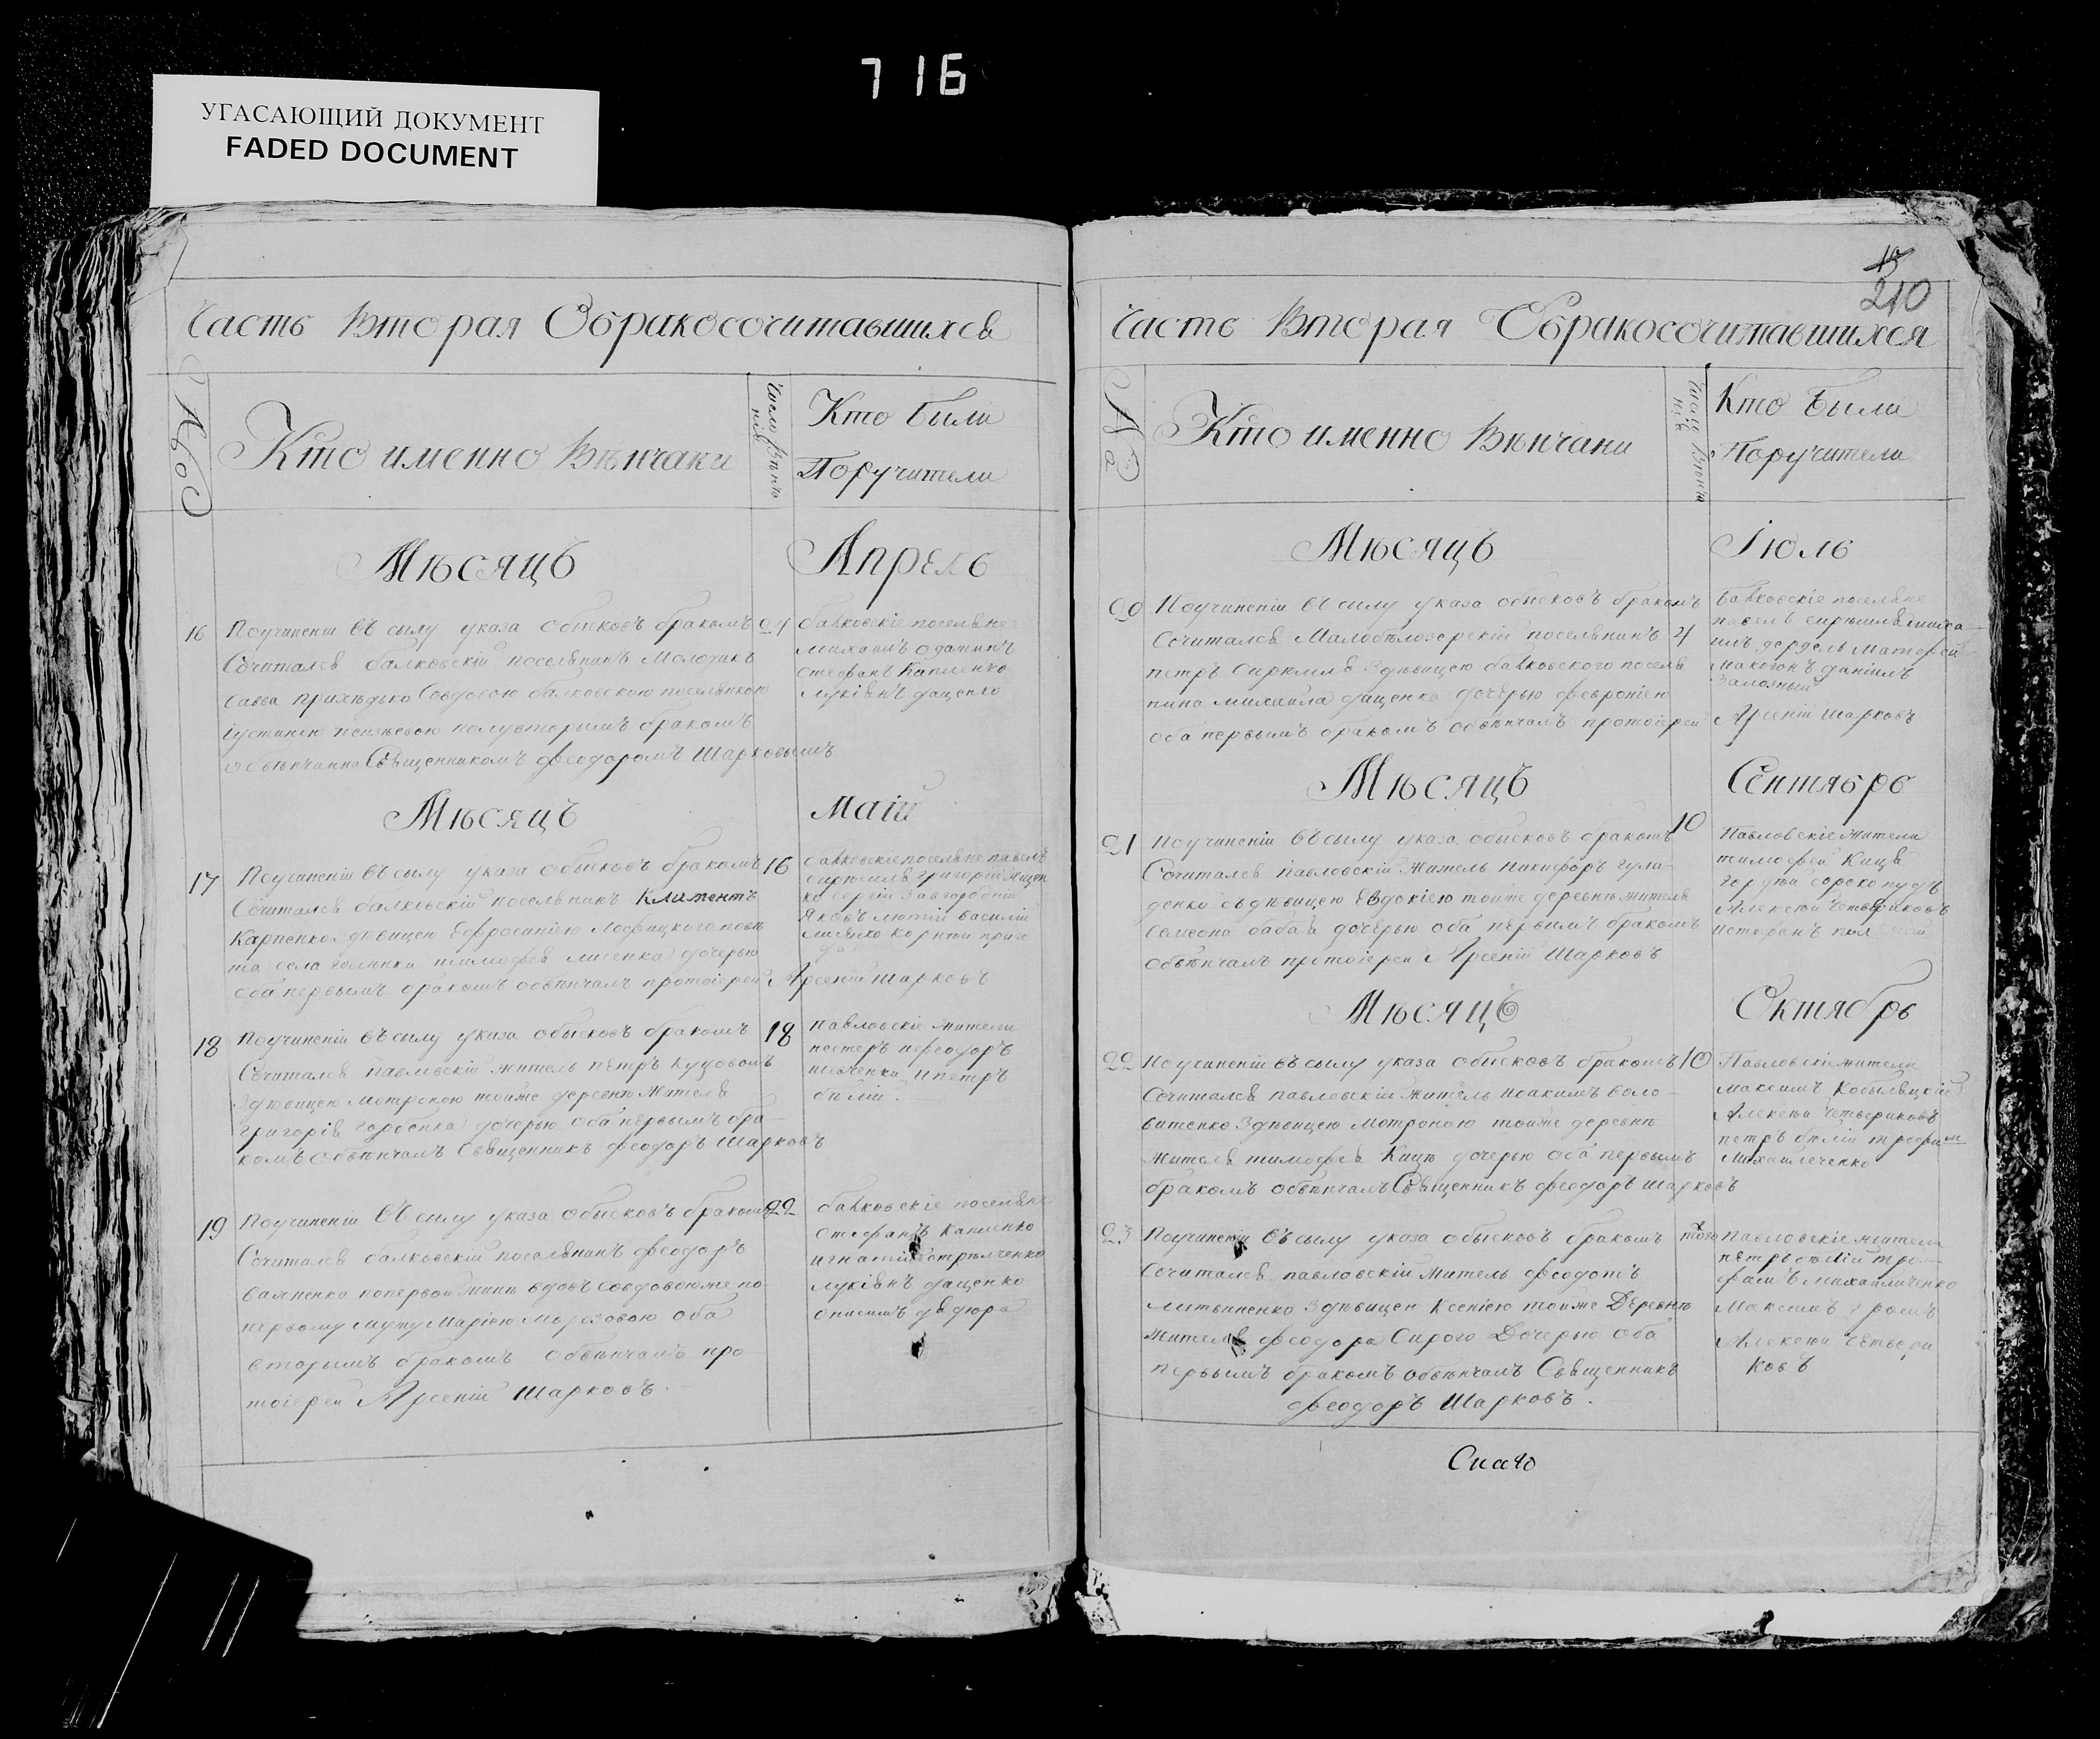 716
УГАСАЮЩИЙ ДОКУМЕНТ
FADED DOCUMENT
Часть Вторая Обракосочитавшихся
Кто именно Вѣнчани
Число Вѣнчанія
Кто были
Поручители
Мѣсяцъ Апрель
16 Поучиненіи въ сылу указа обысковъ бракомъ 24
Сочитался балковскій поселянинъ
Савва совдовою балковскою поселянкою
полувторымъ бракомъ
обвѣнчанны Священникомъ Феодоромъ Шарковымъ
балковскіе поселяне
Михаилъ
Стефанъ Капленко
Лукіянъ Даценко
Мѣсяцъ Маій
17 Поучиненіи въ силу указа обысковъ бракомъ 16
Сочитался балковскій поселянинъ Климентъ
Карпенко здѣвицею Ефросиніею
села тимофея лисенка дочерью
оба первымъ бракомъ обвѣнчалъ протоіерей Арсеній Шарковъ
балковскіе поселяне павелъ
григорій
сергій Завгородній
Яковъ лютій василій
18 Поучиненіи въ силу указа обысковъ бракомъ 18
Сочитался павловскій житель петръ
Здѣвицею мотрекою тойже деревни жителя
григорія горбенка дочерью оба первымъ бра-
комъ обвѣнчалъ Священникъ Феодоръ Шарковъ
павловскіе жители
нестеръ
шевченки ипетръ
бѣлій.
19 Поучиненіи въ силу указа обысковъ бракомъ 22
Сочитался балковскій поселянинъ феодоръ
попервой женѣ вдовъ совдовоюже по
первому мужу Маріею Морозовою оба
вторымъ бракомъ обвѣнчалъ про
тоіерей Арсеній Шарковъ.
балковскіе поселяне
Стефанъ Капленко
игнатій стрѣлченко
лукіянъ даценко
онисимъ дядюра
15
210
Часть Вторая Обракосочитавшихся
Кто именно Вѣнчани
Кто Были
Поручители
Мѣсяцъ Іюль
20 Поучиненіи въ силу указа обысковъ бракомъ
Сочитался Малобѣлозерскій поселянинъ 21
петръ Здѣвицею балковского поселя
нина михаила даценка дочерью февроніею
оба первымъ бракомъ обвѣнчалъ протоіерей Арсеній Шарковъ
Балковскіе поселяне
павелъ
Макогонъ даніилъ
Залозный
Мѣсяцъ Сентябрь
21 Поучиненіи въ силу указа обысковъ бракомъ 10
Сочитался павловскій житель никифоръ гула-
денко сьдѣвицею Евдокіею тойже деревнѣ жителя
семеона дочерью оба первымъ бракомъ
обвѣнчалъ протоіерей Арсеній Шарковъ
Павловскіе жители
тимофей Кица
гордѣй сорокопудъ
Алексѣй Четвериковъ
истефанъ
Мѣсяцъ Октябрь
22 Поучиненіи въ силу указа обысковъ бракомъ 10
Сочитался павловскій житель иоакимъ воло-
витенко Здѣвицею Мотроною тойже деревнѣ
жителя тимофея Кицы дочерью оба первымъ
бракомъ обвѣнчалъ Священникъ феодоръ Шарковъ
Павловскіе жители
максимъ Кобыляцкій
Алексѣй Четвериковъ
петръ бѣлій трофим
Михайличенко
23 Поучиненіи въ силу указа обысковъ бракомъ того
Сочитался павловскій житель феодотъ
литвиненко Здѣвицею Ксеніею тойже Деревнѣ
жителя феодора Сирого Дочерью оба
первымъ бракомъ обвѣнчалъ Священникъ
феодоръ Шарковъ.
павловскіе жители
петръ бѣлій тро-
фимъ михайличенко
Максимъ громъ
Алексѣй Четвери
ковъ